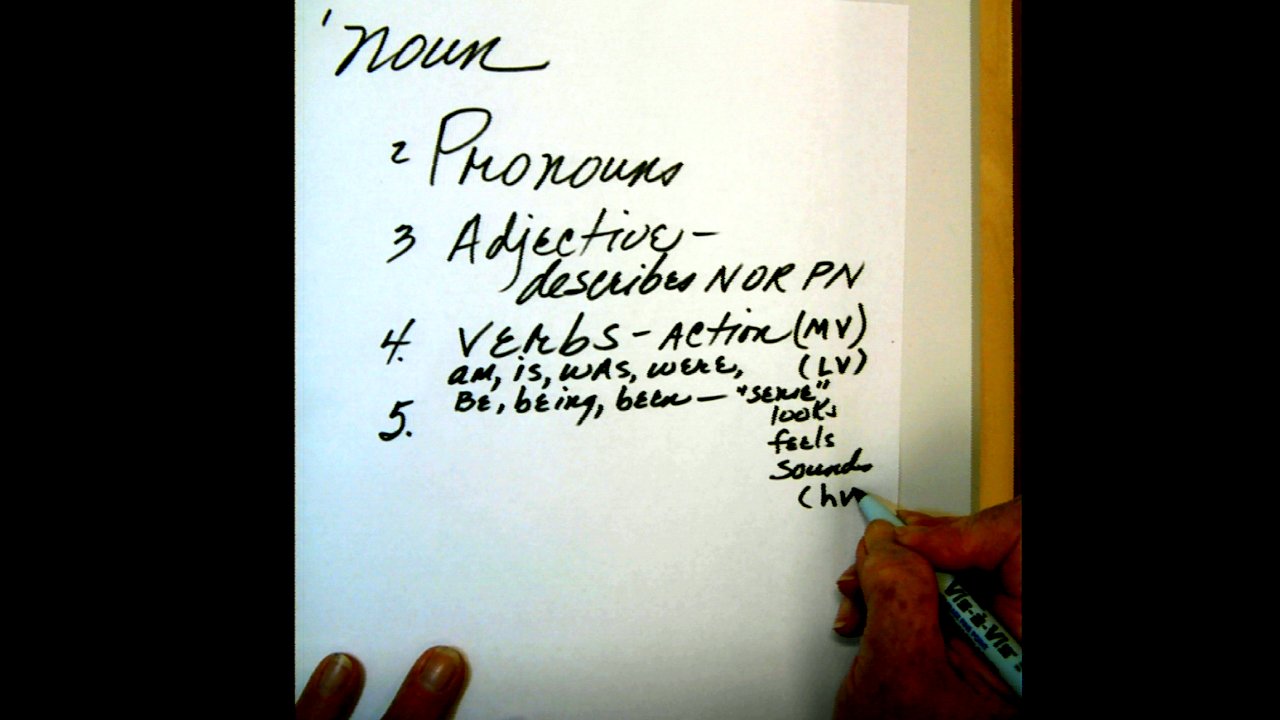 1 noun
2 Pronouns
3 Adjective -
describes N OR PN
4. VERbS - ACtion (MV)
am, is, WAS, WERE, (LV)
5. BE, being, been - "sense"
looks
feels
sounds
(hv
VIS-à-VIS